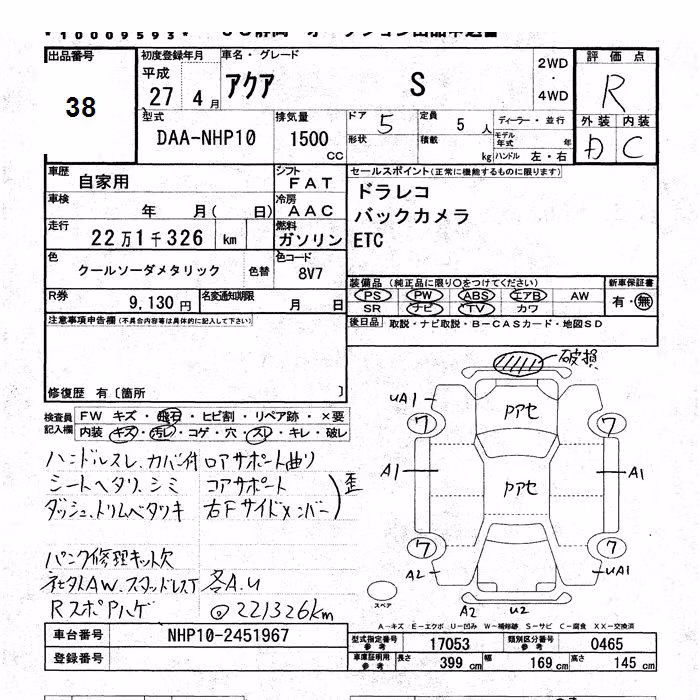 *10009593*
出品番号
38
初度登録年月
平成
27 4月
車名・グレード
アクア S
2WD
・
4WD
評価点
R
型式
DAA-NHP10
排気量
1500
CC
ドア 5
形状
定員 5人
積載 kg
ディーラー・並行
モデル年式 年
ハンドル 左・右
外装 内装
D C
車歴
自家用
シフト
FAT
車検
年 月( 日)
冷房
AAC
走行
22万1千326 km
燃料
ガソリン
色
クールソーダメタリック 色替
色コード
8V7
R券
9,130円
名変通知期限
月 日
セールスポイント(正常に機能するものに限ります)
ドラレコ
バックカメラ
ETC
装備品(純正品に限り○をつけてください)
PS PW ABS エアB AW
SR ナビ TV カワ
新車保証書
有・無
後日品 取説・ナビ取説・B-CASカード・地図SD
注意事項申告欄(不具合内容等は具体的に記入して下さい)
修復歴 有〔箇所 〕
検査員
記入欄
FW キズ・飛石・ヒビ割・リペア跡・×要
内装 キズ・汚レ・コゲ・穴・スレ・キレ・破レ
ハンドルスレ、カバー付 ロアサポート曲り
シートヘタリ、シミ コアサポート
ダッシュ、トリムベタツキ 右Fサイドメンバー
歪
パンク修理キット欠
社外AW、スタッドレスT 各A.U
RスポPハゲ ◎221326km
破損
UA1
7 7
Pアセ
A1 A1
Pアセ
7 7
A2 UA1
スペア
A2 U2
A-キズ E-エクボ U-凹み W-補修跡 S-サビ C-腐食 XX-交換済
車台番号
NHP10-2451967
登録番号
型式指定番号
参考
17053
類別区分番号
参考
0465
車庫証明用
参考
長さ 399cm
幅 169cm
高さ 145cm